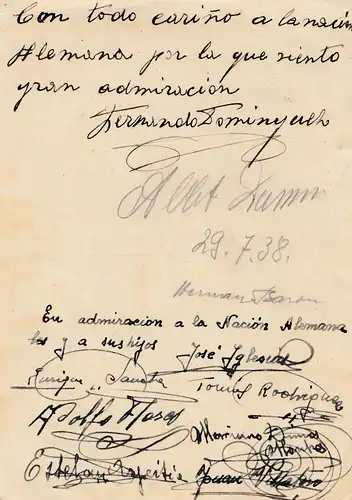 Con todo cariño a la nación
Alemana por la que siento
gran admiración
Fernando Dominguez
Albet
29.7.38.
Herman Baron
En admiracion a la Nación Alemana
y a sus hijos
José Iglesias
Enrique Sancho
Tomas Rodriguez
Adolfo Flores
Mariano
Esteban
Juan